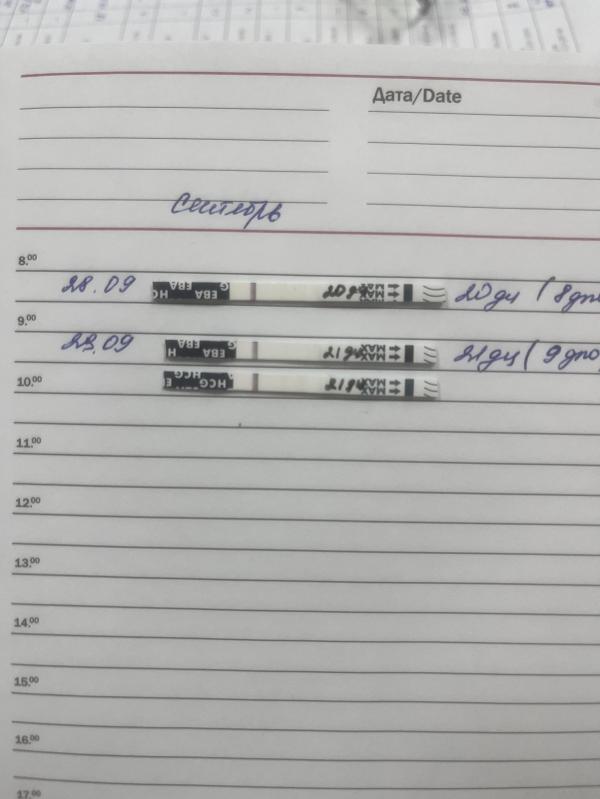 Дата/Date
Сентябрь
8.00
28.09 HCG EBA EBA 20 дц MAX MAX 20 дц (8 дпо
9.00
29.09 EBA EBA 21 дц MAX MAX 21 дц (9 дпо
10.00
HCG HCG 21 дц MAX MAX
11.00
12.00
13.00
14.00
15.00
16.00
17.00